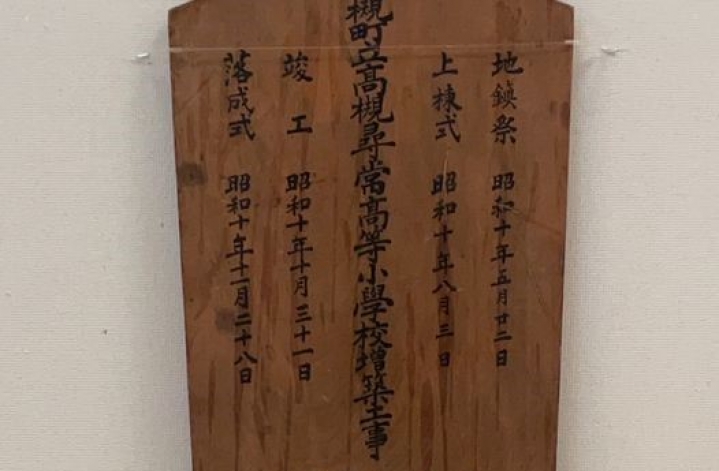 地鎮祭 昭和十年五月廿二日
上棟式 昭和十年八月三日
槻町立高槻尋常高等小學校增築工事
竣工 昭和十年十月三十一日
落成式 昭和十年十一月二十八日